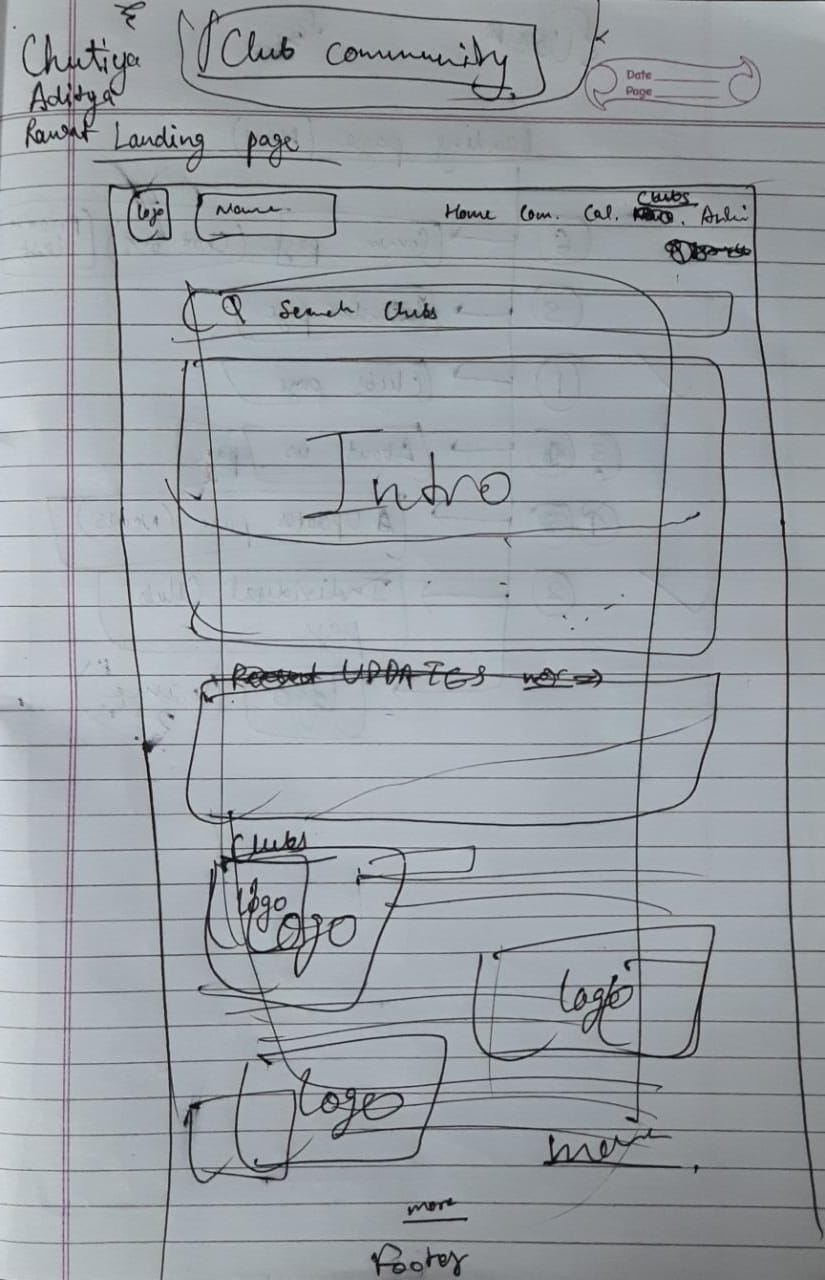 Chutiya
Aditya
Rawat
Club community
Date
Page
Landing page
Logo
Name
Clubs
Home Com. Cal.
Search Clubs
Intro
Recent UPDATES
Clubs
logo
Logo
Logo
Logo
more
more
Footer